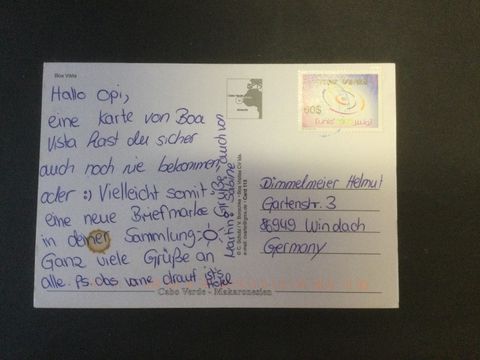 Boa Vista
Hallo Opi,
eine Karte von Boa
Vista hast du sicher
auch noch nie bekommen
oder :) Vielleicht somit
eine neue Briefmarke
in deiner Sammlung :-)
Ganz viele Grüße an
alle. Ps. das vorne drauf ist's
Hotel
Grüße auch von
Martin. Sabine
60$
Dimmelmeier Helmut
Gartenstr. 3
86949 Windach
Germany
Cabo Verde - Makaronesien